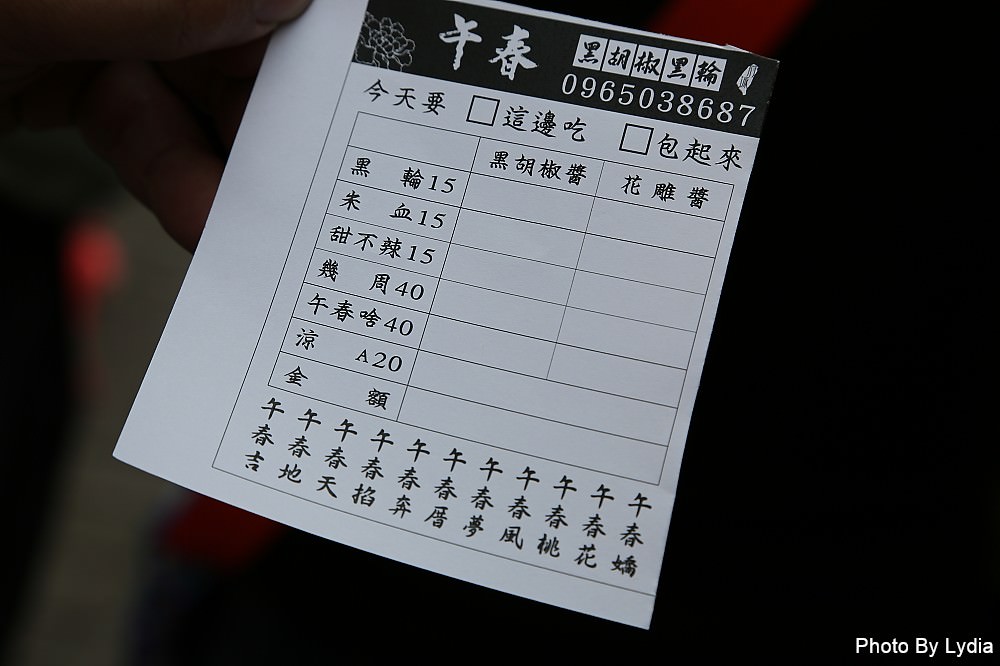 午春 黑胡椒黑輪
0965038687
今天要 □這邊吃 □包起來
黑胡椒醬 花雕醬
黑輪15
朱血15
甜不辣15
幾周40
午春啥40
涼A20
金額
午春吉
午春地
午春天
午春掐
午春奔
午春厝
午春夢
午春風
午春桃
午春花
午春嬌
Photo By Lydia